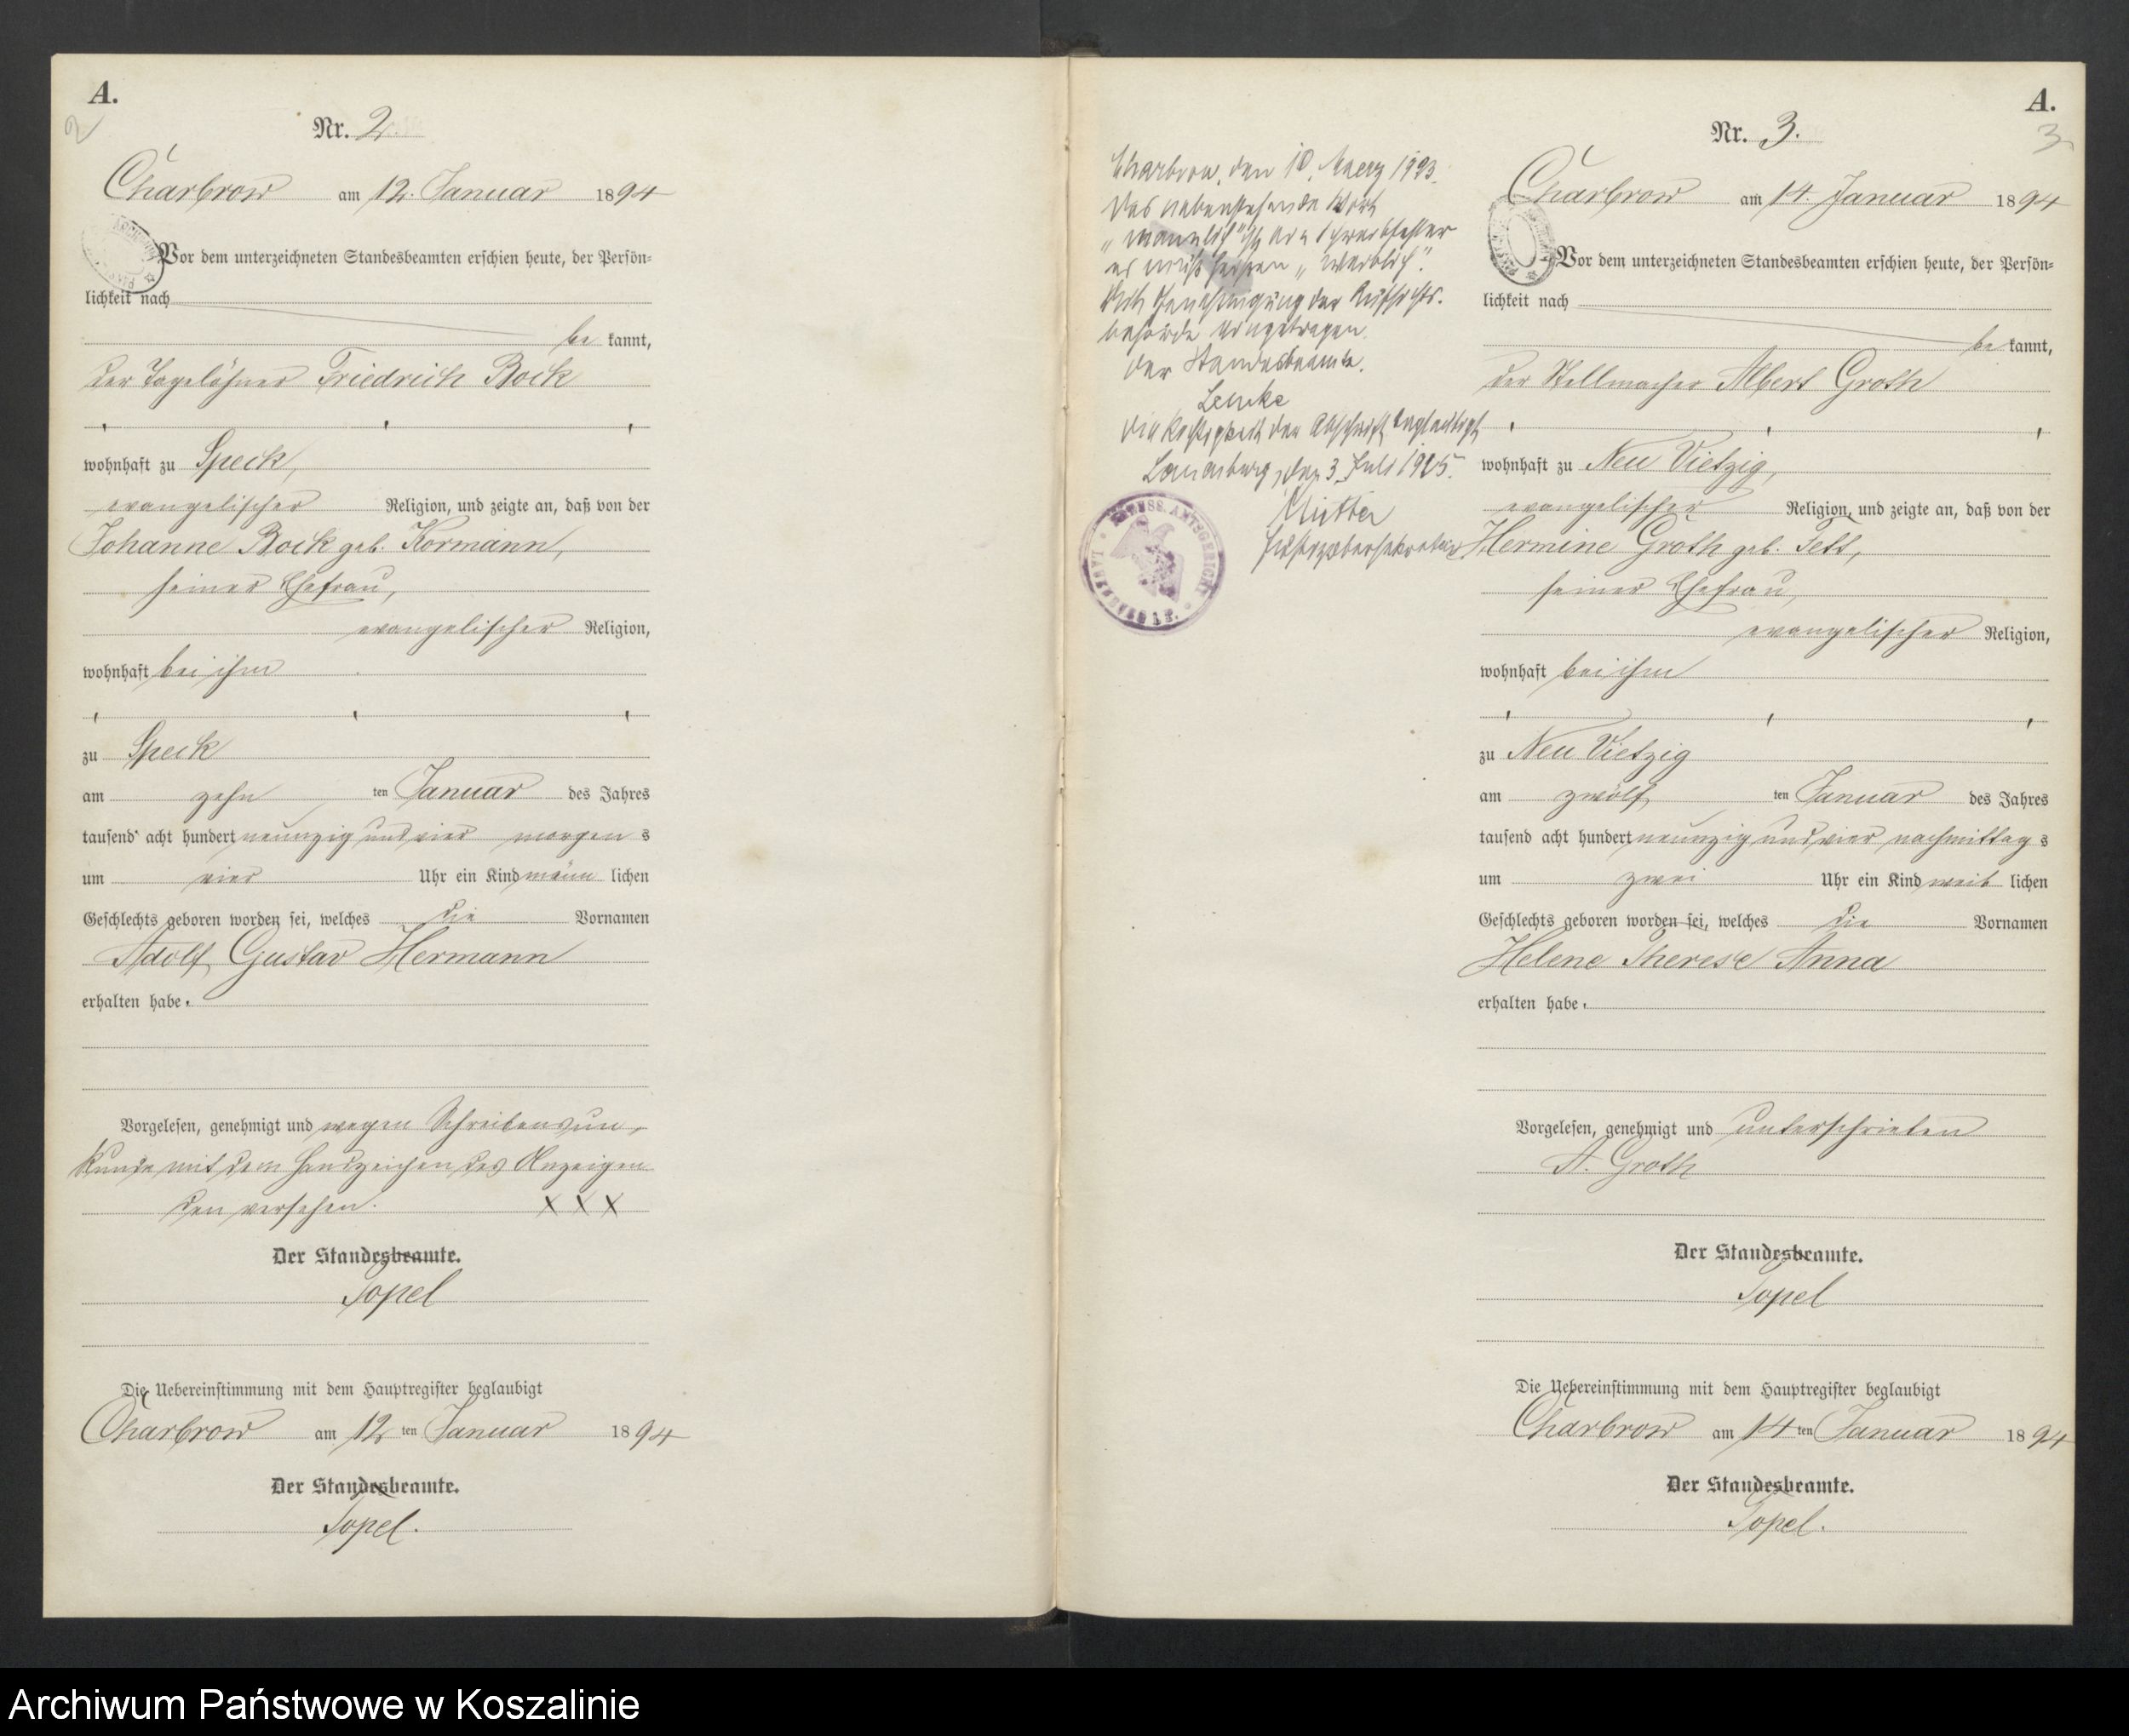 A.
2
Nr. 2
Charbrow am 12. Januar 1894
Vor dem unterzeichneten Standesbeamten erschien heute, der Persön=
lichkeit nach
be kannt,
der Tagelöhner Friedrich Bock
wohnhaft zu Speck,
evangelischer Religion, und zeigte an, daß von der
Johanne Bock geb. Kormann,
seiner Ehefrau,
evangelischer Religion,
wohnhaft bei ihm
zu Speck
am zehn ten Januar des Jahres
tausend acht hundert neunzig und vier morgen s
um vier Uhr ein Kind männ lichen
Geschlechts geboren worden sei, welches die Vornamen
Adolf Gustav Hermann
erhalten habe.
Vorgelesen, genehmigt und wegen Schreibensun-
kunde mit dem Handzeichen des Anzeigen
den versehen. XXX
Der Standesbeamte.
Topel
Die Uebereinstimmung mit dem Hauptregister beglaubigt
Charbrow am 12 ten Januar 1894
Der Standesbeamte.
Topel.
Charbrow, den 10. Maerz 1923.
Das nebenstehende Wort
„maennlich" ist ein Schreibfehler
es muß heißen „weiblich".
Mit Genehmigung der Aufsichts-
behörde eingetragen.
Der Standesbeamte.
Lemke
Die Richtigkeit der Abschrift beglaubigt
Lauenburg, den 3. Juli 1925.
Justizobersekretär
PREUSS. AMTSGERICHT * LAUENBURG
A.
3
Nr. 3.
Charbrow am 14. Januar 1894
Vor dem unterzeichneten Standesbeamten erschien heute, der Persön=
lichkeit nach
be kannt,
der Stellmacher Albert Groth
wohnhaft zu Neu Vietzig,
evangelischer Religion, und zeigte an, daß von der
Hermine Groth geb. Tett,
seiner Ehefrau,
evangelischer Religion,
wohnhaft bei ihm
zu Neu Vietzig
am zwölf ten Januar des Jahres
tausend acht hundert neunzig und vier nachmittag s
um zwei Uhr ein Kind weib lichen
Geschlechts geboren worden sei, welches die Vornamen
Helene Therese Anna
erhalten habe.
Vorgelesen, genehmigt und unterschrieben
A. Groth
Der Standesbeamte.
Topel
Die Uebereinstimmung mit dem Hauptregister beglaubigt
Charbrow am 14 ten Januar 1894
Der Standesbeamte.
Topel.
Archiwum Państwowe w Koszalinie